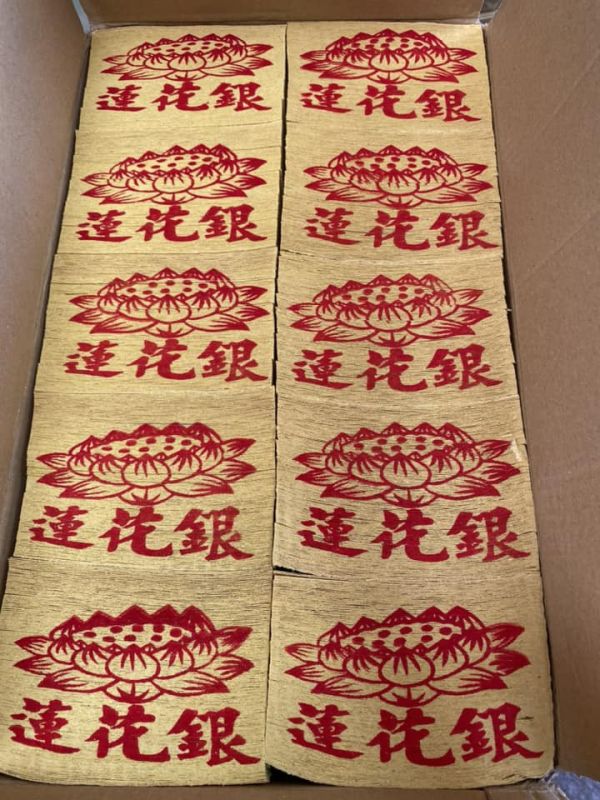 蓮花銀
蓮花銀
蓮花銀
蓮花銀
蓮花銀
蓮花銀
蓮花銀
蓮花銀
蓮花銀
蓮花銀